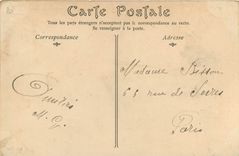 Carte Postale
Tous les pays étrangers n'acceptent pas la correspondance au verso.
Se renseigner à la poste.
Correspondance
Adresse
Madame
68 rue de Sèvres
Paris